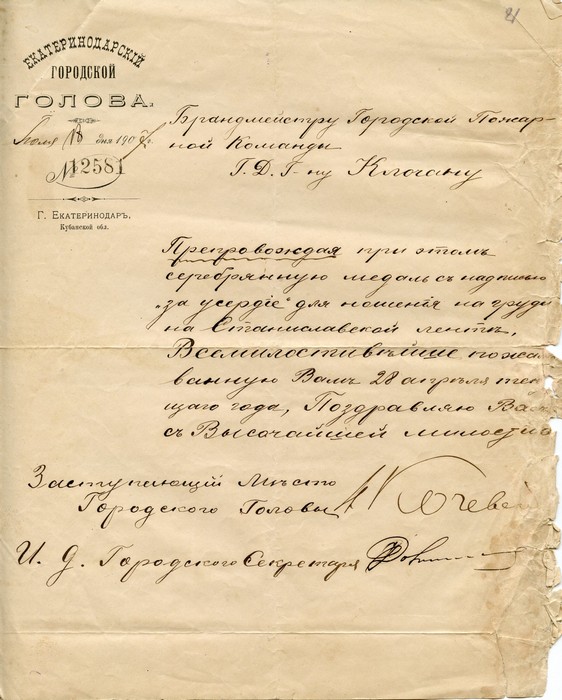 21
ЕКАТЕРИНОДАРСКІЙ
ГОРОДСКОЙ
ГОЛОВА.
Іюля 18 дня 190
№ 12581
Г. ЕКАТЕРИНОДАРЪ,
Кубанской обл.
Брандмейстру Городской Пожар-
ной Команды
Г. Д. Г-ну Клогану
Препровождая при этомъ
серебрянную медаль съ надписью
„за усердіе" для ношенія на груди
на Станиславской лентѣ,
Всемилостивѣйше пожа
ванную Вамъ 28 апрѣля теку
щаго года, Поздравляю Васъ
съ Высочайшей милостью
Заступающій Мѣсто
Городского Головы
И. д. Городского Секретаря